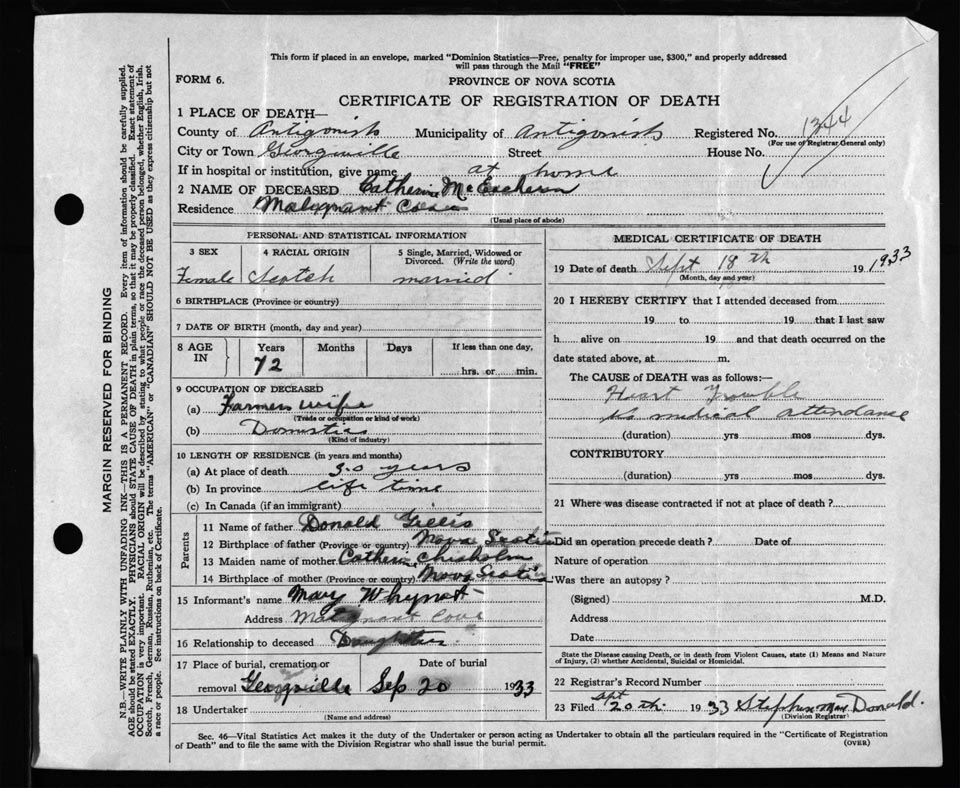 This form if placed in an envelope, marked "Dominion Statistics—Free, penalty for improper use, $300," and properly addressed
will pass through the Mail "FREE"
FORM 6.
PROVINCE OF NOVA SCOTIA
CERTIFICATE OF REGISTRATION OF DEATH
1 PLACE OF DEATH—
County of Antigonish Municipality of Antigonish Registered No. 1344
(For use of Registrar General only)
City or Town Georgville Street House No.
If in hospital or institution, give name at home
2 NAME OF DECEASED Catherine McEachern
Residence Malignant Cove
(Usual place of abode)
PERSONAL AND STATISTICAL INFORMATION
3 SEX 4 RACIAL ORIGIN 5 Single, Married, Widowed or Divorced. (Write the word)
Female Scotch married
6 BIRTHPLACE (Province or country)
7 DATE OF BIRTH (month, day and year)
8 AGE IN Years Months Days If less than one day,
72 hrs. or min.
9 OCCUPATION OF DECEASED
(a) Farmers wife
(Trade or occupation or kind of work)
(b) Domestic
(Kind of industry)
10 LENGTH OF RESIDENCE (in years and months)
(a) At place of death 30 years
(b) In province life time
(c) In Canada (if an immigrant)
Parents
11 Name of father Donald Gillis
12 Birthplace of father (Province or country) Nova Scotia
13 Maiden name of mother Catherine Chisholm
14 Birthplace of mother (Province or country) Nova Scotia
15 Informant's name Mary Whynot
Address Malignant Cove
16 Relationship to deceased Daughter
17 Place of burial, cremation or Date of burial
removal Georgville Sep 20 1933
18 Undertaker
(Name and address)
MEDICAL CERTIFICATE OF DEATH
19 Date of death Sept 18th 19 1933
(Month, day and year)
20 I HEREBY CERTIFY that I attended deceased from
19 to 19 that I last saw
h alive on 19 and that death occurred on the
date stated above, at m.
The CAUSE of DEATH was as follows:—
Heart Trouble
No medical attendance
(duration) yrs mos dys.
CONTRIBUTORY
(duration) yrs mos dys.
21 Where was disease contracted if not at place of death?
Did an operation precede death? Date of
Nature of operation
Was there an autopsy?
(Signed) M.D.
Address
Date
State the Disease causing Death, or in death from Violent Causes, state (1) Means and Nature
of Injury, (2) whether Accidental, Suicidal or Homicidal.
22 Registrar's Record Number
23 Filed Sept 20th 1933 Stephen MacDonald.
(Division Registrar)
Sec. 46—Vital Statistics Act makes it the duty of the Undertaker or person acting as Undertaker to obtain all the particulars required in the "Certificate of Registration
of Death" and to file the same with the Division Registrar who shall issue the burial permit.
(OVER)
MARGIN RESERVED FOR BINDING
N.B.—WRITE PLAINLY WITH UNFADING INK—THIS IS A PERMANENT RECORD. Every item of information should be carefully supplied.
AGE should be stated EXACTLY. PHYSICIANS should STATE CAUSE OF DEATH in plain terms, so that it may be properly classified. Exact statement of
OCCUPATION is very important. RACIAL ORIGIN will be described by stating to what people or race the deceased person belonged, whether English, Irish,
Scotch, French, German, Russian, Ruthenian, etc. The terms "AMERICAN" or "CANADIAN" SHOULD NOT BE USED as they express citizenship but not
a race or people. See instructions on back of Certificate.